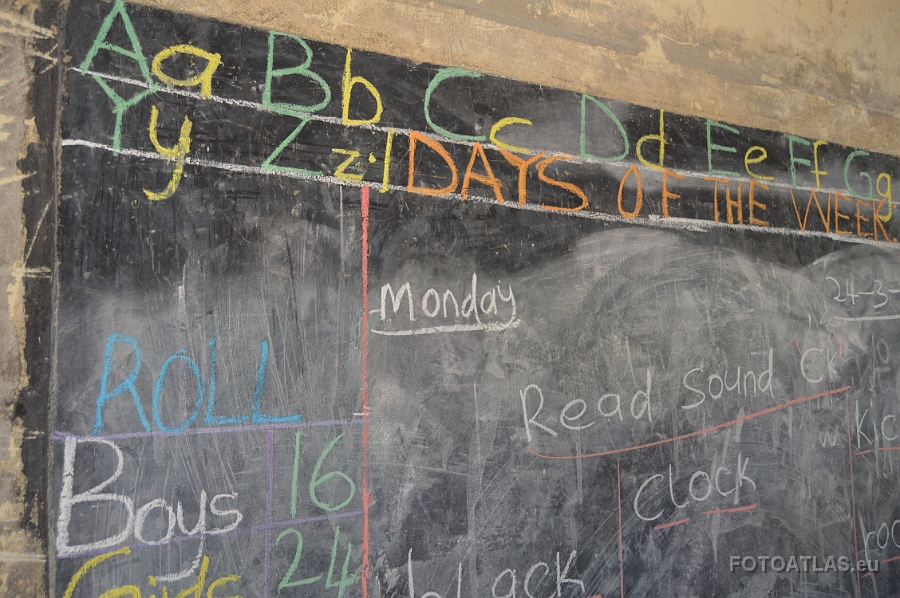 Aa Bb Cc Dd Ee Ff Gg
Yy Zz DAYS OF THE WEEK.
Monday
24-3-
Read Sound 'CK'
ROLL
Clock
Boys 16
Girls 24
black
FOTOATLAS.eu